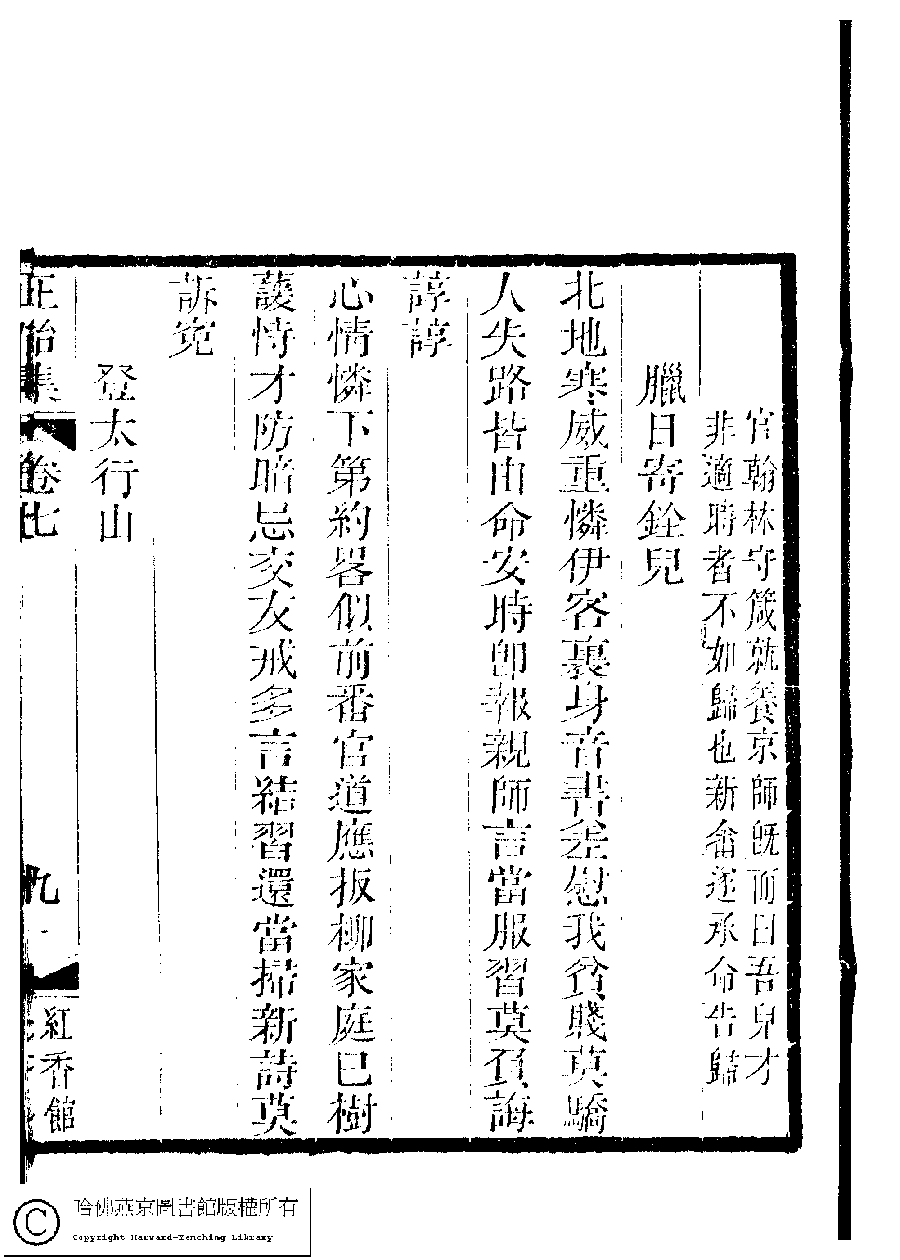 官翰林守箴就養京師旣而曰吾兒才
非適時者不如歸也新畬遂承命告歸
臘日寄銓兒
北地寒威重憐伊客裏身音書差慰我貧賤莫驕
人失路皆由命安時卽報親師言當服習莫負誨
諄諄
心情憐下第約畧似前番官道應扳柳家庭已樹
諼恃才防暗忌交友戒多言結習還當掃新詩莫
訴寃
登太行山
正始集 卷七 九 紅香館
哈佛燕京圖書館版權所有
Copyright Harvard-Yenching Library